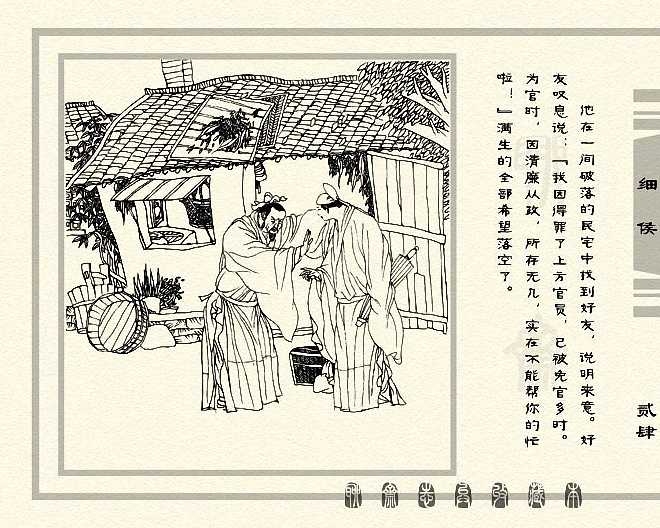 他在一间破落的民宅中找到好友，说明来意。好
友叹息说：『我因得罪了上方官员，已被免官多时。
为官时，因清廉从政，所存无几，实在不能帮你的忙
啦！』满生的全部希望落空了。
细侯
贰肆
聊斋志异收藏本